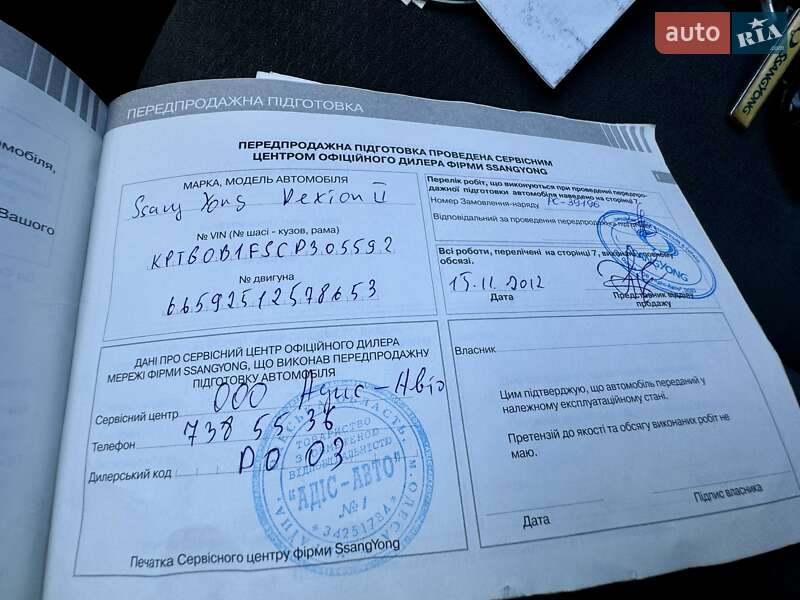 auto RIA .com
SSANGYONG
ПЕРЕДПРОДАЖНА ПІДГОТОВКА
мобіля,
Вашого
ПЕРЕДПРОДАЖНА ПІДГОТОВКА ПРОВЕДЕНА СЕРВІСНИМ
ЦЕНТРОМ ОФІЦІЙНОГО ДИЛЕРА ФІРМИ SSANGYONG
МАРКА, МОДЕЛЬ АВТОМОБІЛЯ
Ssang Yong Rexton II
№ VIN (№ шасі - кузов, рама)
KPTB0B1FSCP305592
№ двигуна
66592512578653
Перелік робіт, що виконуються при проведенні передпро-
дажної підготовки автомобіля наведено на сторінці 7.
Номер Замовлення-наряду РС-39196
Відповідальний за проведення передпродажної
Всі роботи, перелічені на сторінці 7, виконані
обсязі.
15.11.2012
Дата
Представник відділу
продажу
ДАНІ ПРО СЕРВІСНИЙ ЦЕНТР ОФІЦІЙНОГО ДИЛЕРА
МЕРЕЖІ ФІРМИ SSANGYONG, ЩО ВИКОНАВ ПЕРЕДПРОДАЖНУ
ПІДГОТОВКУ АВТОМОБІЛЯ
Сервісний центр ООО Адис-Авто
Телефон 738 55 36
Дилерський код DO 03
ТОВАРИСТВО
З ОБМЕЖЕНОЮ
ВІДПОВІДАЛЬНІСТЮ
"АДІС-АВТО"
№1
Печатка Сервісного центру фірми SsangYong
Власник
Цим підтверджую, що автомобіль переданий у
належному експлуатаційному стані.
Претензій до якості та обсягу виконаних робіт не
маю.
Дата
Підпис власника